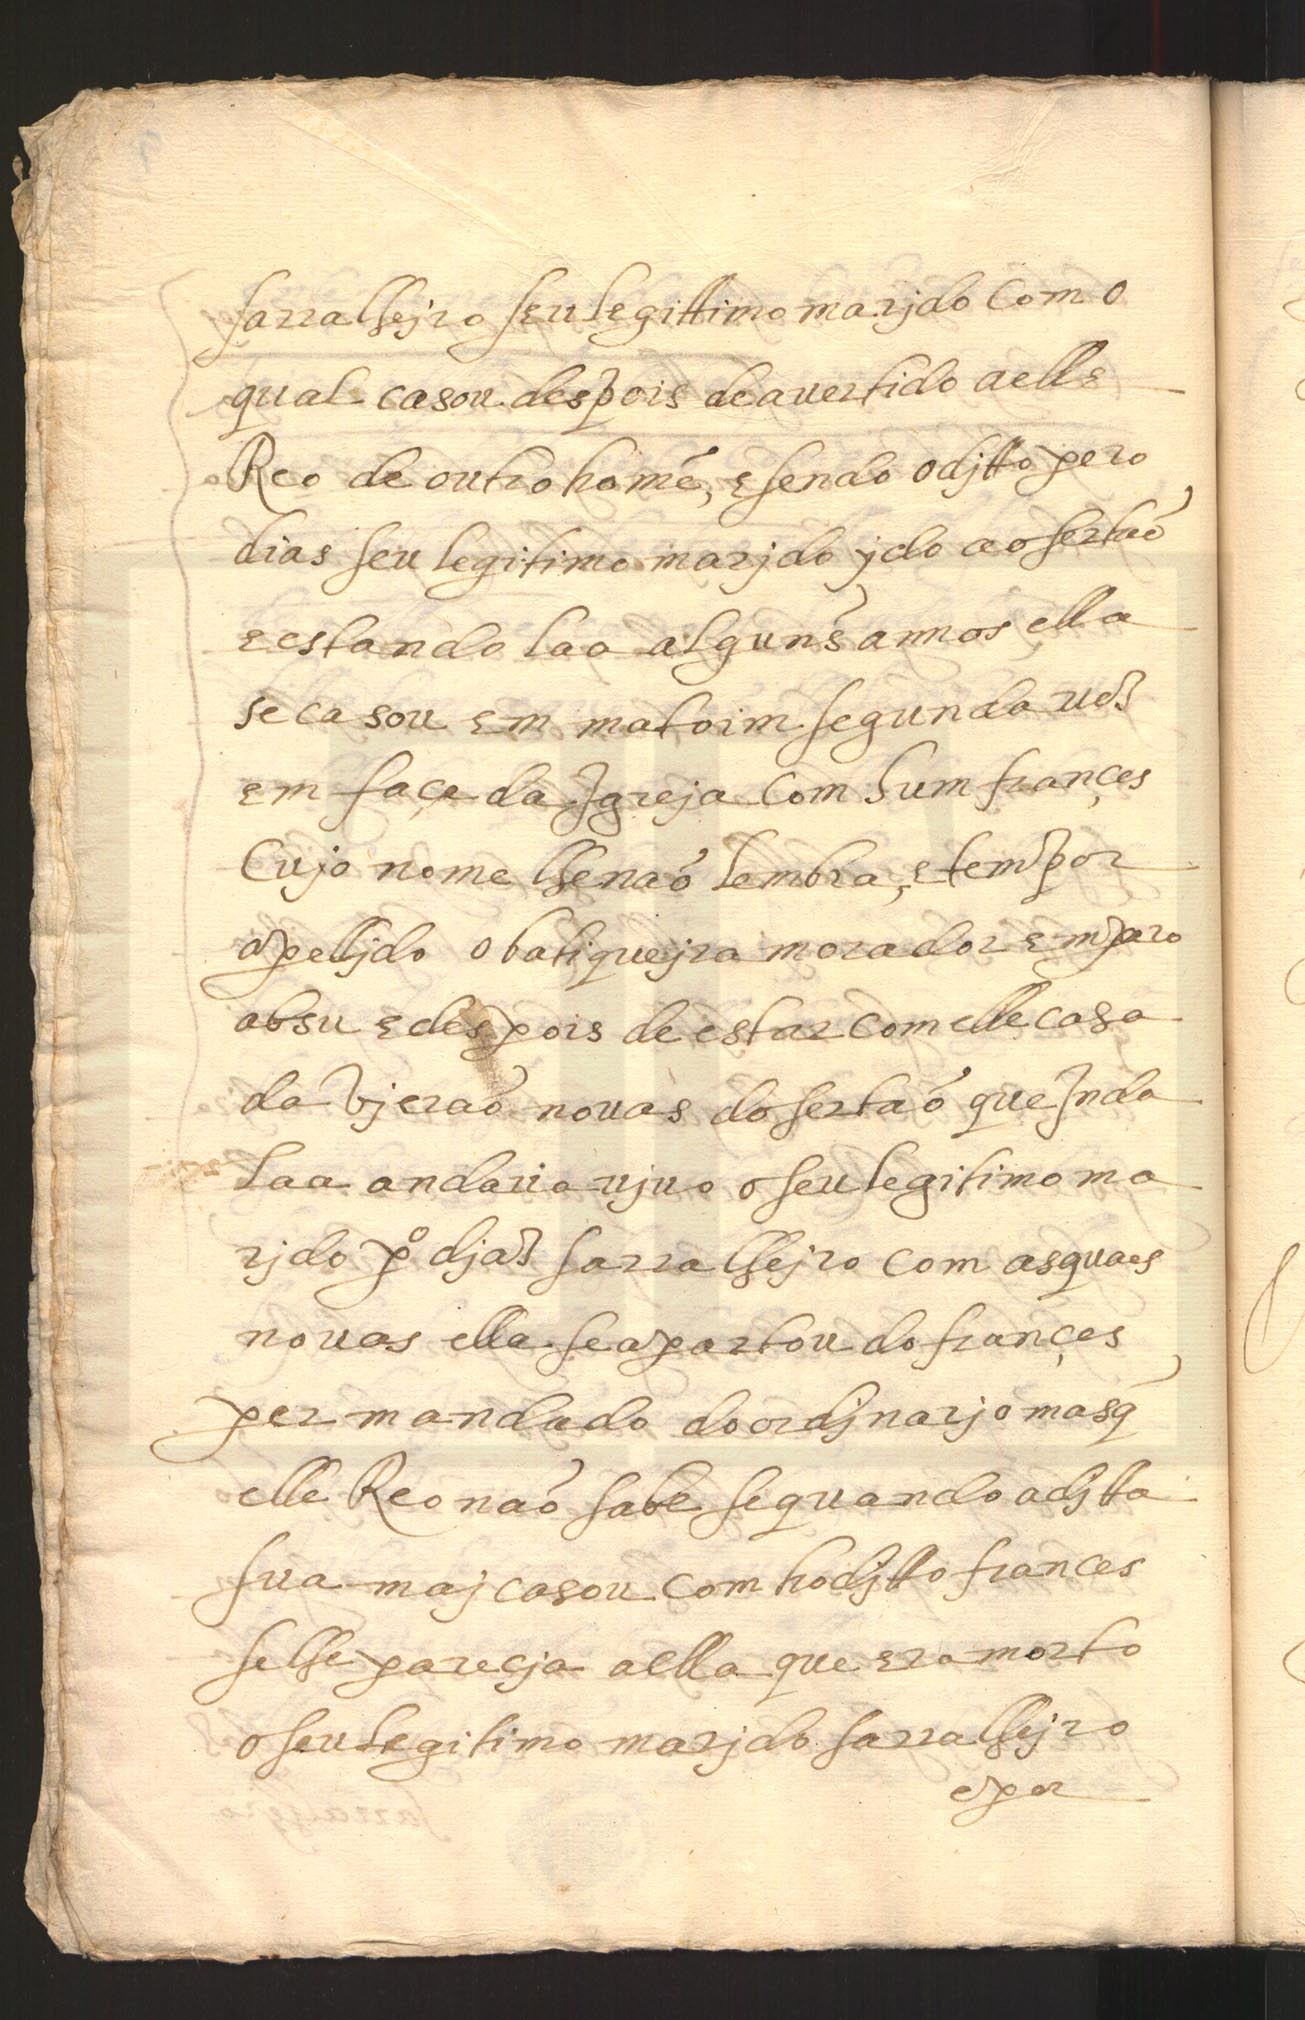 sarralhejro seu legittimo marjdo com o
qual casou despois de avertido a elle
Reo de outro homẽ, e sendo o djtto pero
dias seu legitimo marjdo jdo ao sertaõ
e estando laa algunṡ annos ella
se casou em matoim segunda ves
em façe da Igreja com hum françes
Cujo nome lhe naõ lembra, e tem por
apelljdo o batiquejra morador em para
absu e despois de estar com elle casa
da vjeraõ novas do sertaõ que Inda
laa andava vjvo o seu legitimo ma
rjdo po djas sarralhejro com as quaes
novas ella se apartou do françes
per mandado do ordjnarjo mas q̃
elle Reo naõ sabe se quando a djtta
sua maj casou com ho djtto frances
se lhe parecja a ella que era morto
o seu legitimo marjdo sarralhejro
e por